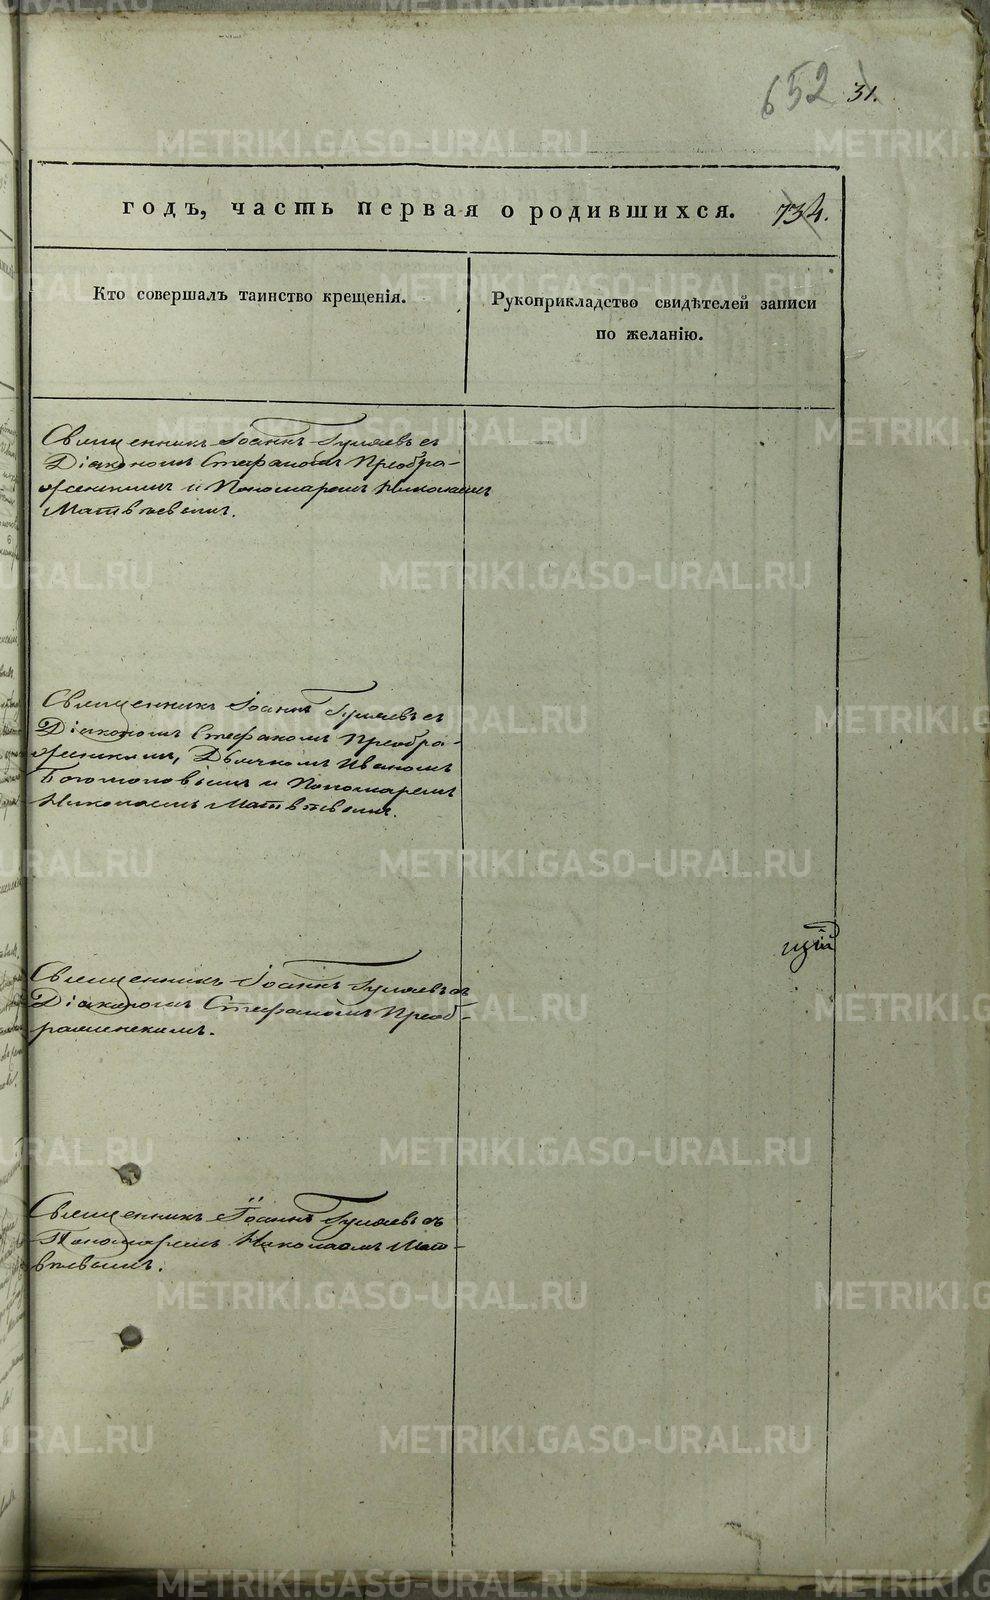 652 31.
годъ, часть первая о родившихся. 734.
Кто совершалъ таинство крещенія.
Рукоприкладство свидѣтелей записи
по желанію.
Священникъ Іоаннъ Гуляевъ с
Діакономъ Стефаномъ Преобра-
женскимъ и Пономаремъ Николаемъ
Матвѣевымъ.
Священникъ Іоаннъ Гуляевъ с
Діакономъ Стефаномъ Преобра-
женскимъ, Дьячкомъ Иваномъ
и Пономаремъ
Николаемъ Матвѣевымъ.
Священникъ Іоаннъ Гуляевъ съ
Діакономъ Стефаномъ Преоб-
раженскимъ.
Священникъ Іоаннъ Гуляевъ съ
Пономаремъ Николаемъ Мат-
вѣевымъ.
METRIKI.GASO-URAL.RU